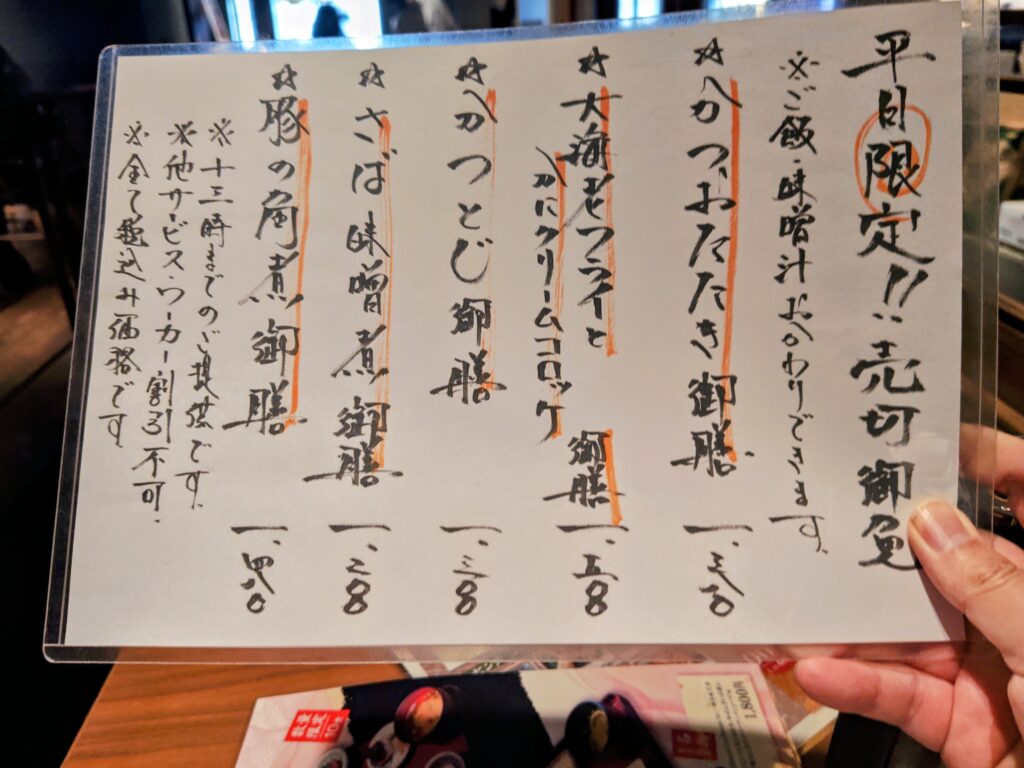 平日限定!!売切御免
※ご飯・味噌汁おかわりできます。
☆かつおたたき御膳 一、三八〇
☆大海老フライと
かにクリームコロッケ 御膳 一、五〇〇
☆かつとじ御膳 一、三〇〇
☆さば味噌煮御膳 一、二〇〇
☆豚の角煮御膳 一、四八〇
※十三時までのご提供です。
※他サービス・ワーカー割引不可。
※全て税込み価格です
数量
限定
1,800円